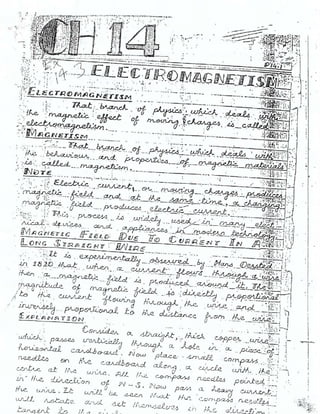 CH 14
ELECTROMAGNETISM
ELECTROMAGNETISM
That branch of physics which deals with
the magnetic effect of moving charges is called
electromagnetism.
MAGNETISM
That branch of physics which deals with
the behaviour and properties of magnetic materials
is called magnetism.
NOTE
Electric current or moving charges produce
magnetic field and at the same time, a changing
magnetic field produces electric current.
This process is widely used in many elect
rical devices and appliances in modern technology
MAGNETIC FIELD DUE TO CURRENT IN A
LONG STRAIGHT WIRE
It is experimentally observed by Hans Oersted
in 1820 that when a current flows through a wire
then a magnetic field is produced around it. The
magnitude of magnetic field is directly proportional
to the current flowing through the wire and
inversely proportional to the distance from the wire
EXPLANATION
Consider a straight, thick copper wire
which passes vertically through a hole in a piece of
horizontal cardboard. Now place small compass
needles on the cardboard along a circle with the
centre at the wire. All the compass needles pointed
in the direction of N-S. Now pass a heavy current
the wire. It will be seen that the compass needles
will rotate and set themselves in the direction
tangent to the